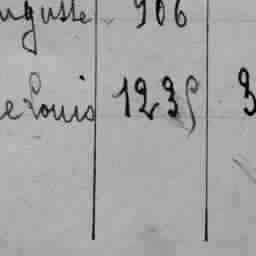 uguste 906
e Louis 1235 3